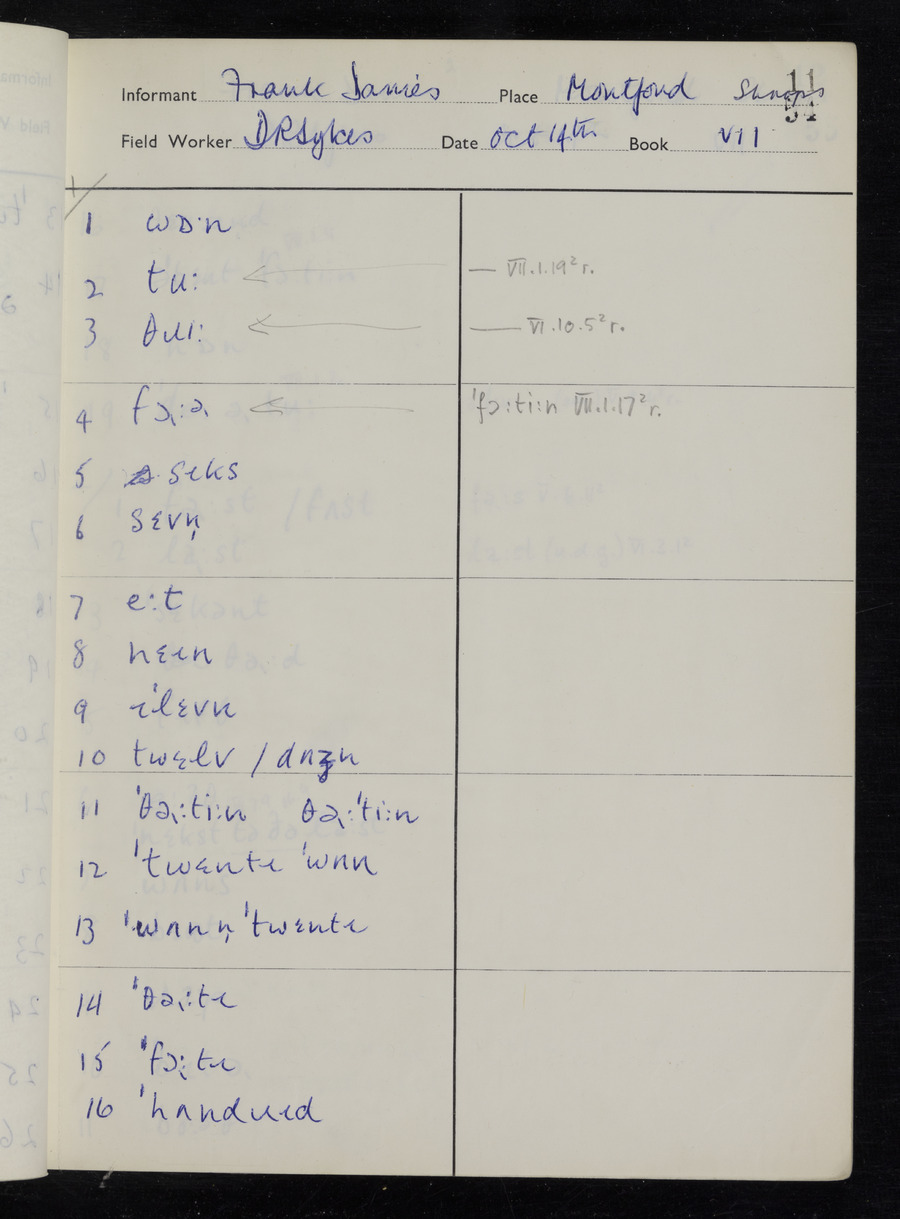 Informant Frank James Place Montford Salops 11
Field Worker DRSykes Date Oct 14th Book VII 34
1 wɒ·n
2 tu: — VII.1.19² r.
3 θɹɪ: — VI.10.5² r.
4 fɔ:ə 'fɔ:ti:n VII.1.17² r.
5 sɪks
6 sɛvn̩
7 e:t
8 nɛɪn
9 ɪ'lɛvn
10 twɛlv / dʌzn
11 'θə:ti:n θə:'ti:n
12 'twɛntɪ 'wʌn
13 'wʌn n̩ 'twɛntɪ
14 'θə:tɪ
15 'fɔ:tɪ
16 'hʌndɹɪd